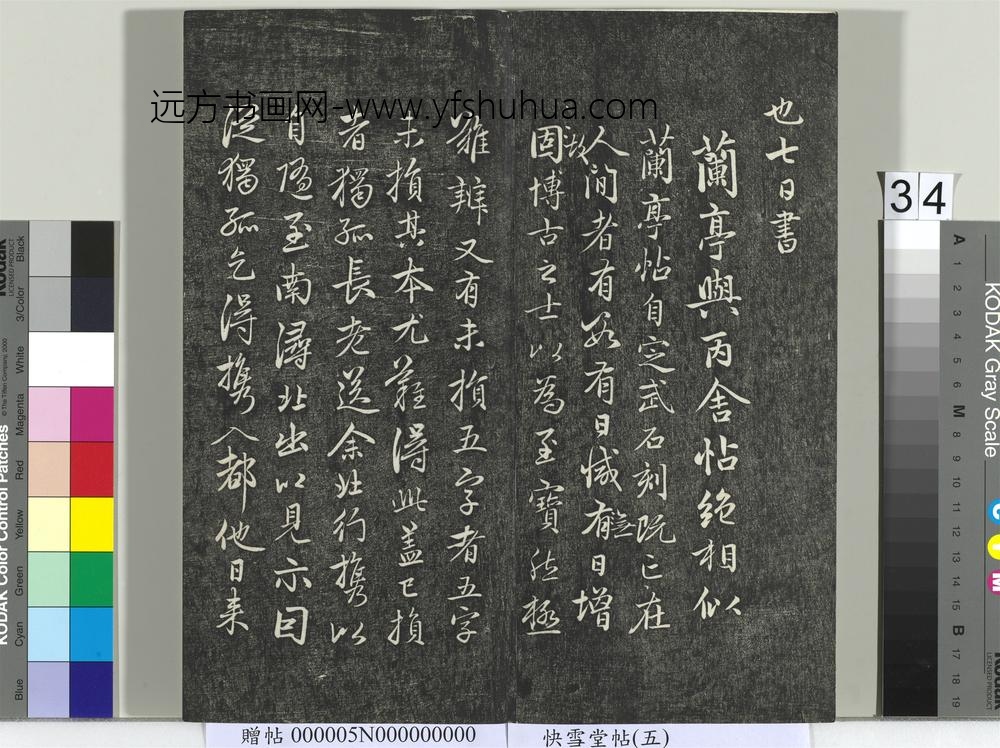 也七日書
蘭亭與丙舍帖絶相似
蘭亭帖自定武石刻既亡在
人間者有數有日減有無日增
故
固博古之士以為至寶然極
難辨又有未損五字者五字
未損其本尤難得此蓋已損
者獨孤長老送余北行攜以
自隨至南潯北出以見示因
從獨孤乞得攜入都他日来
远方书画网-www.yfshuhua.com
34
贈帖 000005N000000000
快雪堂帖(五)
KODAK Color Control Patches
© The Tiffen Company, 2000
Kodak
LICENSED PRODUCT
Black
3/Color
White
Magenta
Red
Yellow
Green
Cyan
Blue
KODAK Gray Scale
C
Y
M
Kodak
LICENSED PRODUCT
A 1 2 3 4 5 6 M 8 9 10 11 12 13 14 15 B 17 18 19